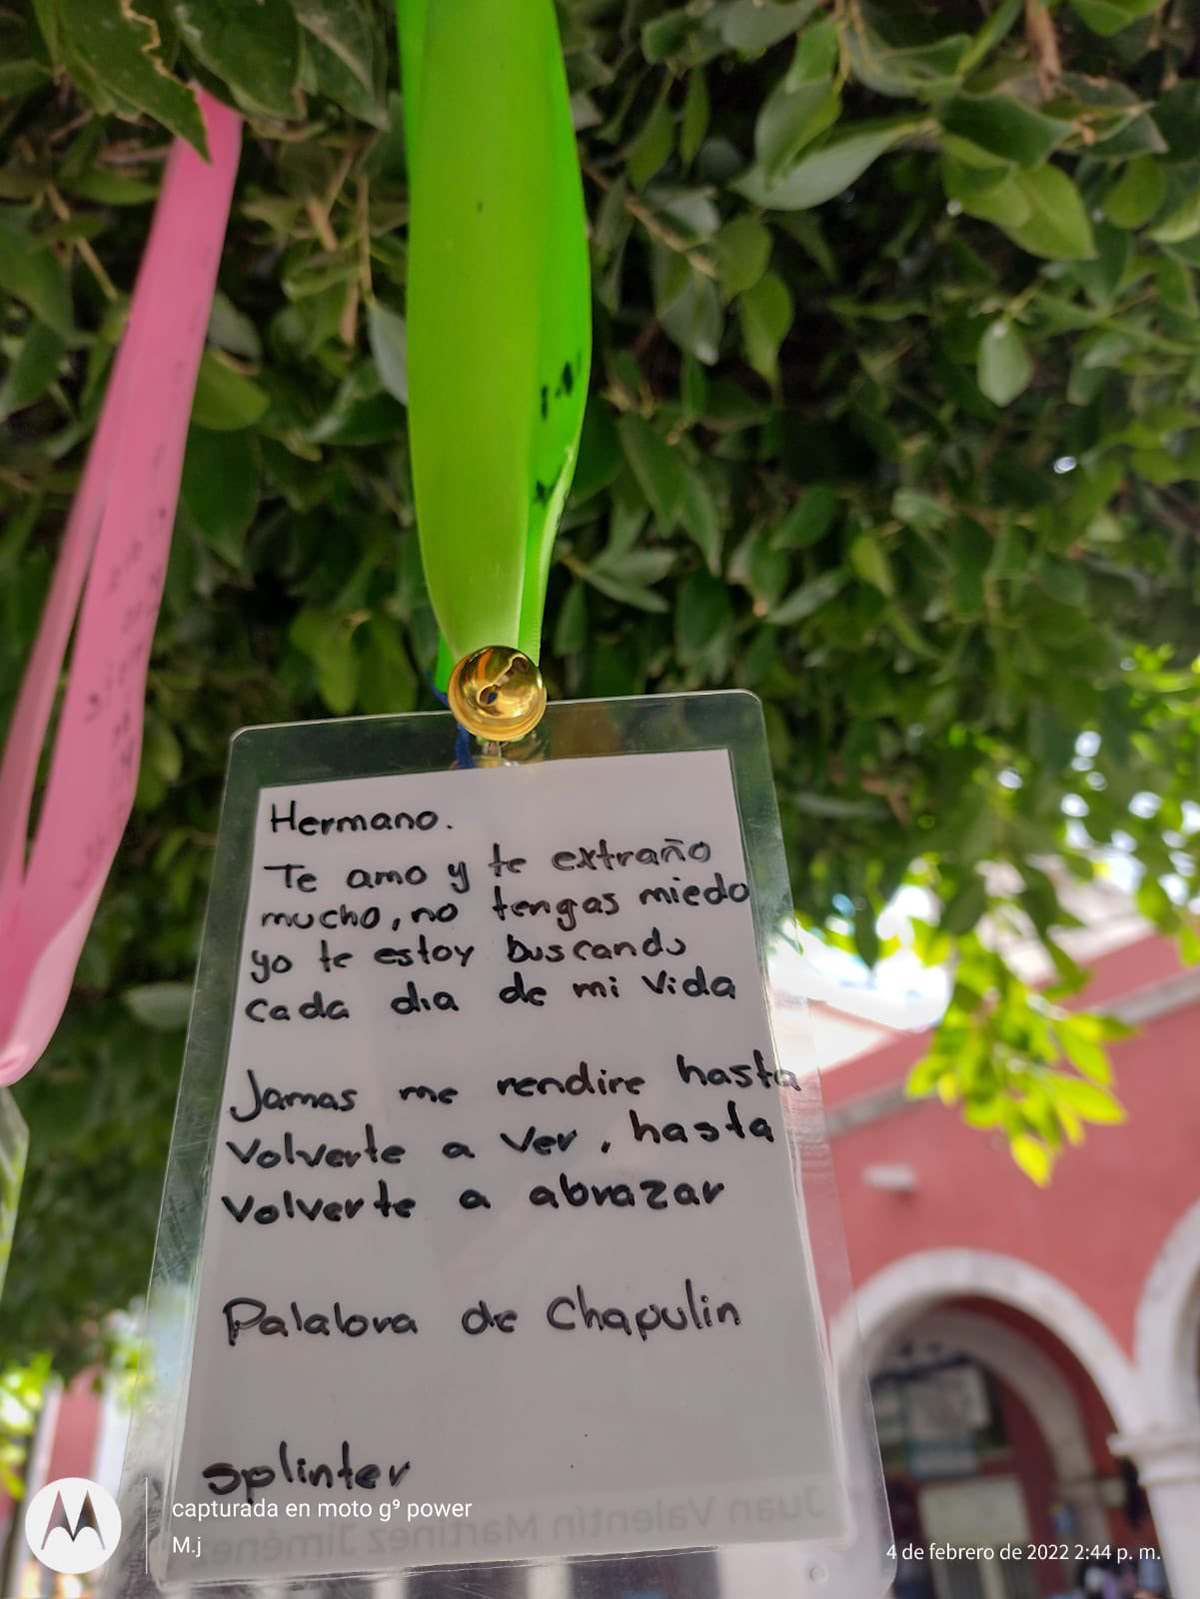 Hermano.
Te amo y te extraño
mucho, no tengas miedo
yo te estoy buscando
Cada dia de mi Vida
Jamas me rendire hasta
Volverte a Ver, hasta
Volverte a abrazar
Palabra de Chapulin
splinter
Juan Valentín Martínez Jiménez
capturada en moto g⁹ power
M.j
4 de febrero de 2022 2:44 p. m.